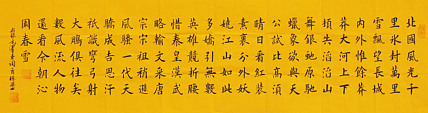 北國風光千
里冰封萬里
雪飄望長城
內外惟餘莽
莽大河上下
頓失滔滔山
舞銀蛇原馳
蠟象欲與天
公試比高須
晴日看紅裝
素裹分外妖
嬈江山如此
多嬌引無數
英雄競折腰
惜秦皇漢武
略輸文采唐
宗宋祖稍遜
風騷一代天
驕成吉思汗
祇識彎弓射
大鵰俱往矣
數風流人物
還看今朝沁
園春雪